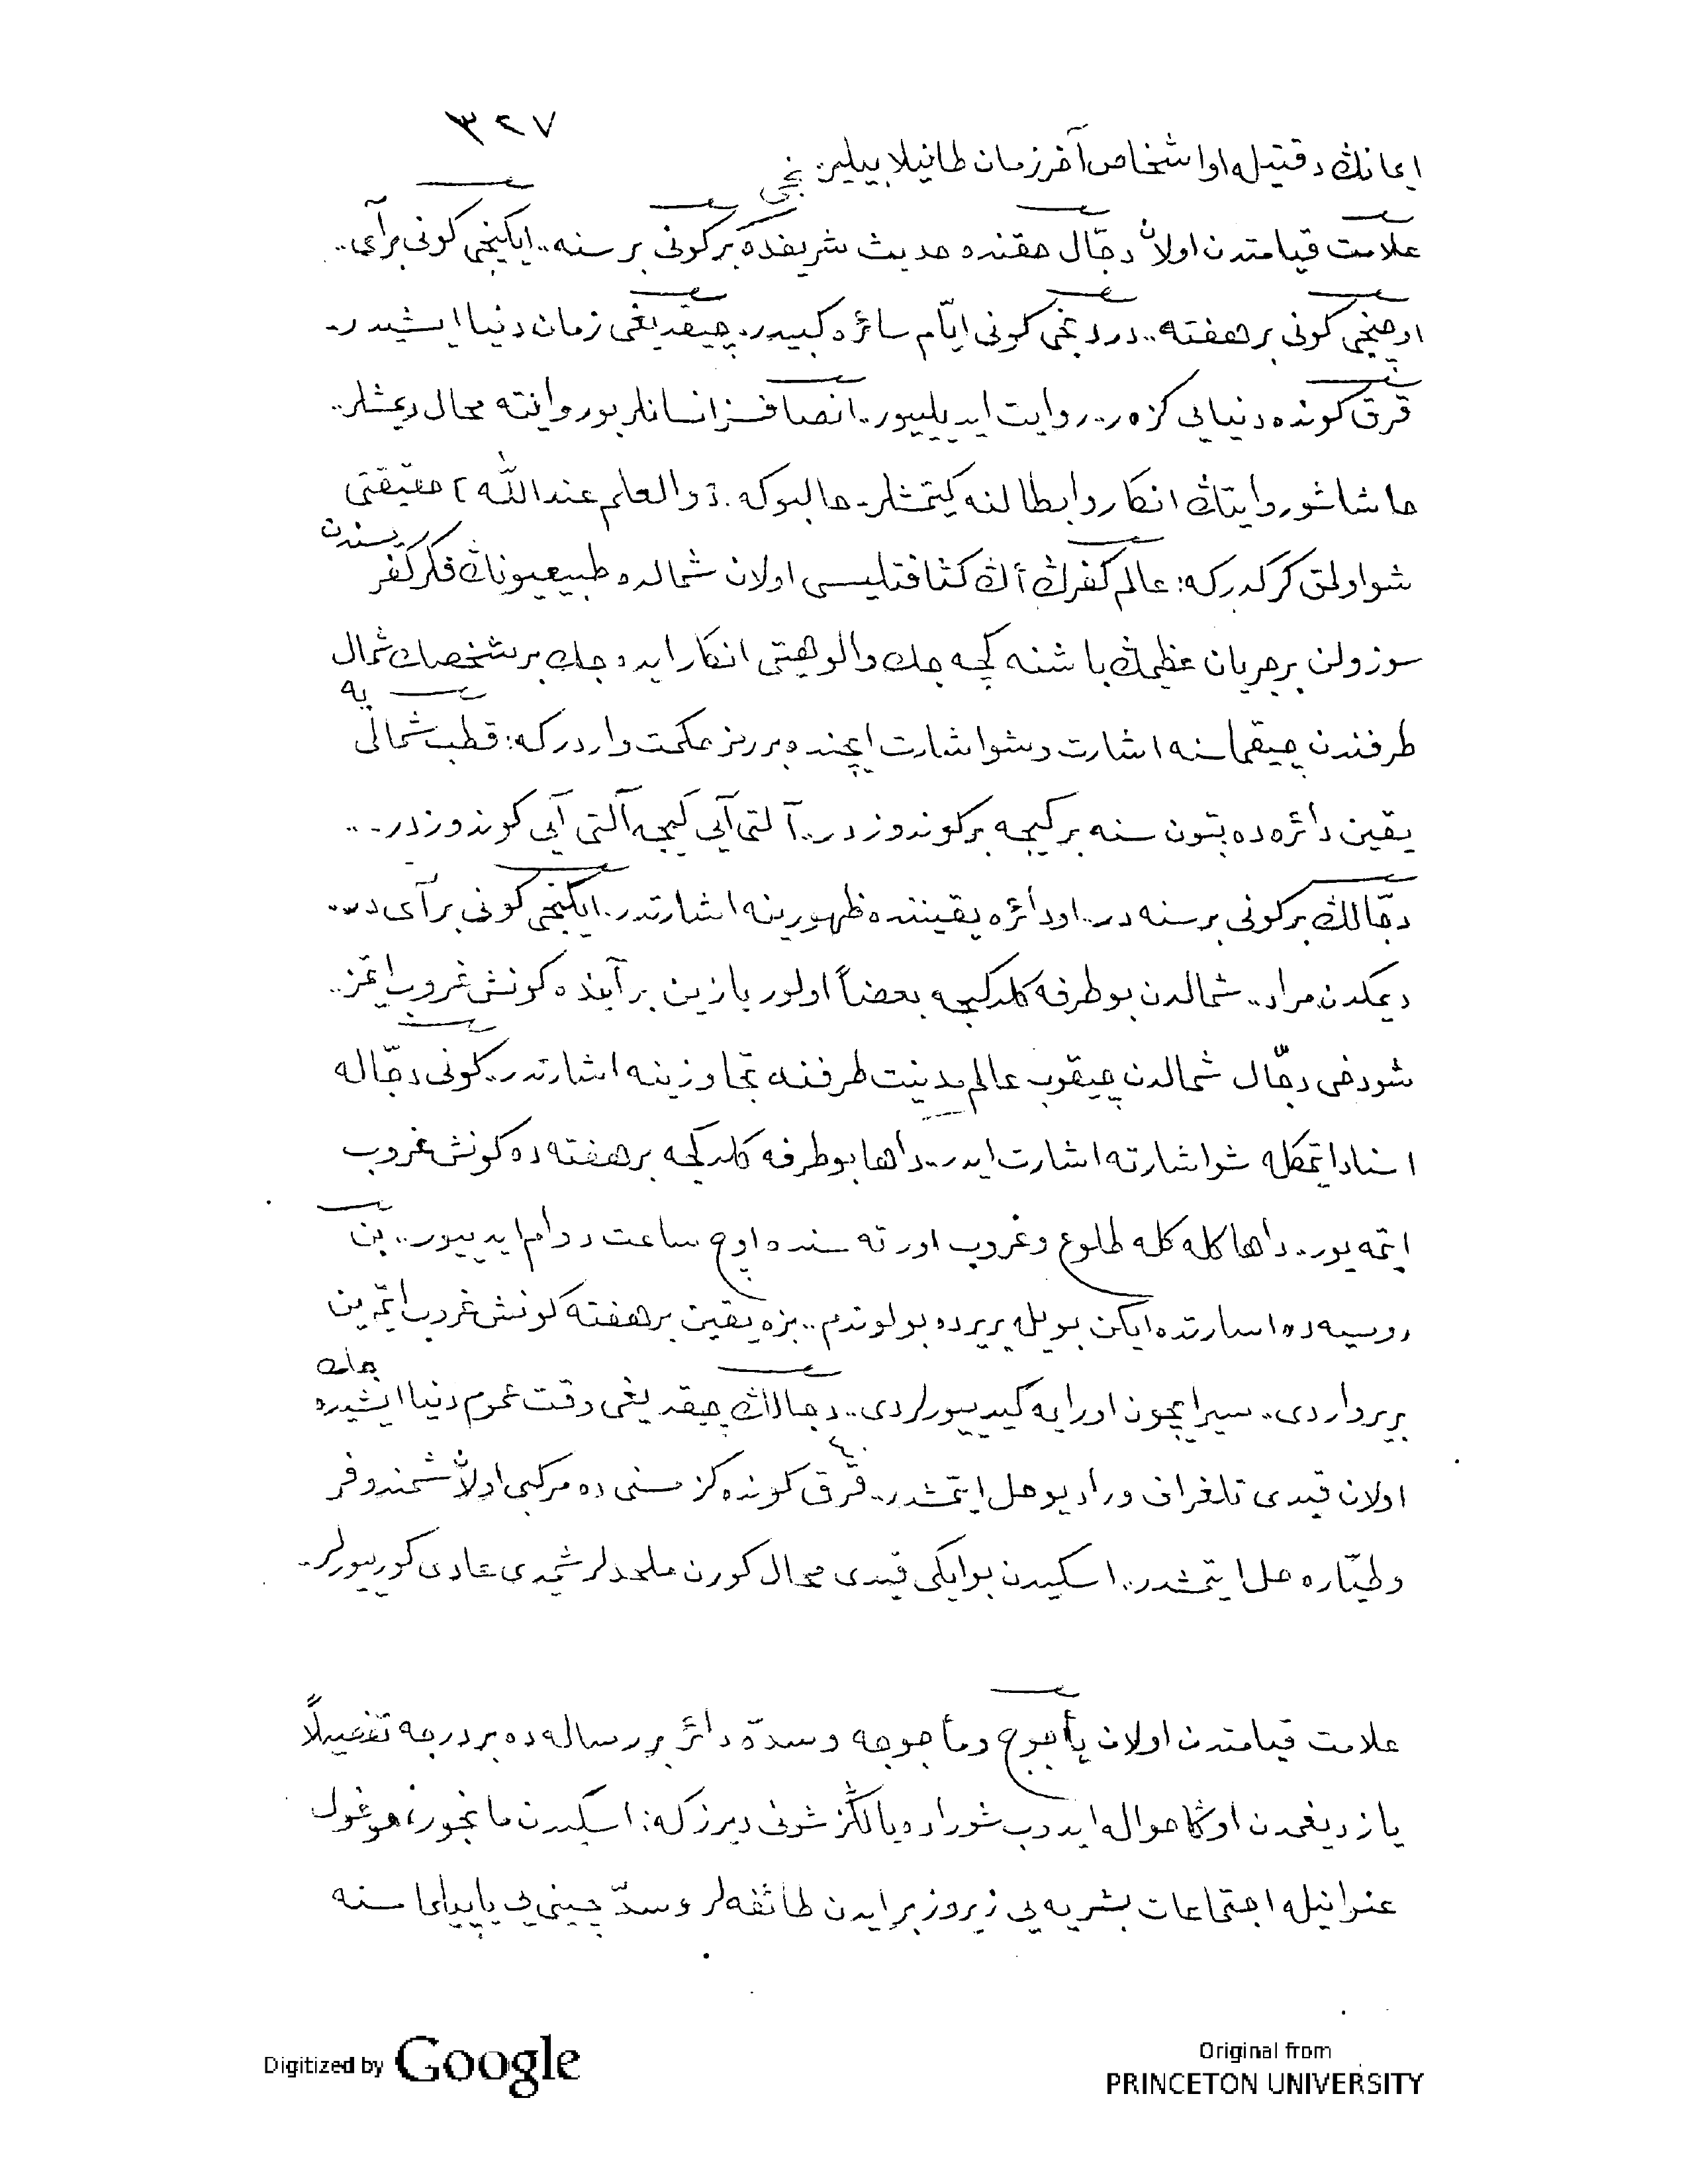 ٣٢٧
ايمانڭ دقتيله او اشخاص آخرزمان طانيلابيلير.
علامت قيامتدن اولان دجّال حقنده حديث شريفده بر كونى بر سنه.. ايكنجى كونى بر آى..
اوچنجى كونى بر هفته.. دردنجى كونى ايّام سائره كبيدر. چيقديغى زمان دنيا ايشيدر.
قرق كونده دنيايى كزه ر.. روايت ايديلييور.. انصافسز انسانلر بو روايته محال ديمشلر..
حاشا شو روايتڭ انكار و ابطالنه كيتمشلر. حالبوكه.. [والعلم عندالله] حقيقتى
شو اولمق كركدركه: عالم كفرڭ اڭ كثافتليسى اولان شمالده طبيعيونڭ فكر كفريسندن
سوزولن بر جريان عظيمڭ باشنه كچه جك و الوهيتى انكار ايده جك بر شخصڭ شمال
طرفندن چيقماسنه اشارت و شو اشارت ايچنده بر رمز حكمت واردركه: قطب شمالى يه
يقين دائره ده بتون سنه بر كيجه بر كوندوزدر.. آلتى آيى كيجه آلتى آيى كوندوزدر...
دجّالڭ بر كونى بر سنه در.. او دائره يقيننده ظهورينه اشارتدر. ايكنجى كونى بر آى در..
ديمكدن مراد.. شمالدن بو طرفه كلدكجه بعضاً اولور يازين بر آيده كونش غروب ايتمز..
شو دخى دجّال شمالدن چيقوب عالم مدنيت طرفنه تجاوزينه اشارتدر.. كونى دجّاله
اسناد ايتمكله شو اشارته اشارت ايدر.. داها بو طرفه كلدكجه بر هفته ده كونش غروب
ايتمه يور.. داها كله كله طلوع و غروب اورته سنده اوچ ساعت دوام ايدييور.. بن
روسيه ده اسارتده ايكن بويله بر يرده بولوندم.. بزه يقين بر هفته كونش غروب ايتمه ين
بر ير واردى.. سير ايچون اورايه كيدييورلردى.. دجالڭ چيقديغى وقت عموم دنيا ايشيده جك
اولان قيدى تلغراف و راديو حل ايتمشدر.. قرق ٤٠ كونده كزمسنى ده مركبى اولان شمندوفر
و طيّاره حل ايتمشدر.. اسكيدن بو ايكى قيدى محال كورن ملحدلر شيمدى عادى كورييورلر.
علامت قيامتدن اولان يأجوج و مأجوجه و سدّه دائر بر رساله ده بر درجه تفصيلاً
يازديغمدن اوڭا حواله ايدوب شوراده يالڭز شونى ديرزكه: اسكيدن مانجور، موغول
عنوانيله اجتماعات بشريه يى زيروزبر ايدن طائفه لر و سدّ چينى يى ياپيلماسنه
Digitized by Google
Original from
PRINCETON UNIVERSITY